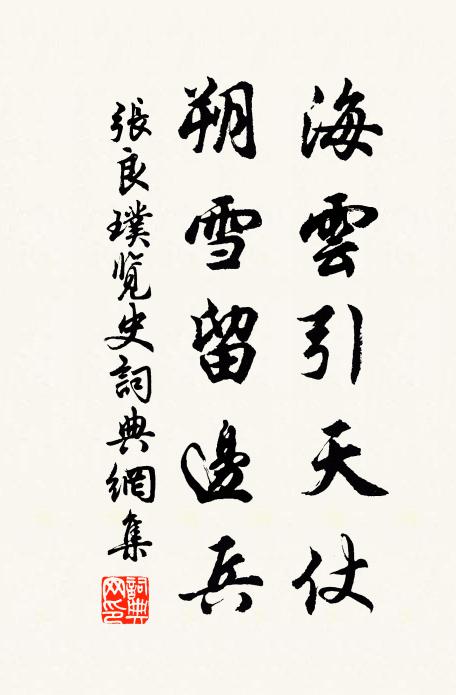 海雲引天仗
朔雪留邊兵
張良璞覽史詞典網集
詞典網印